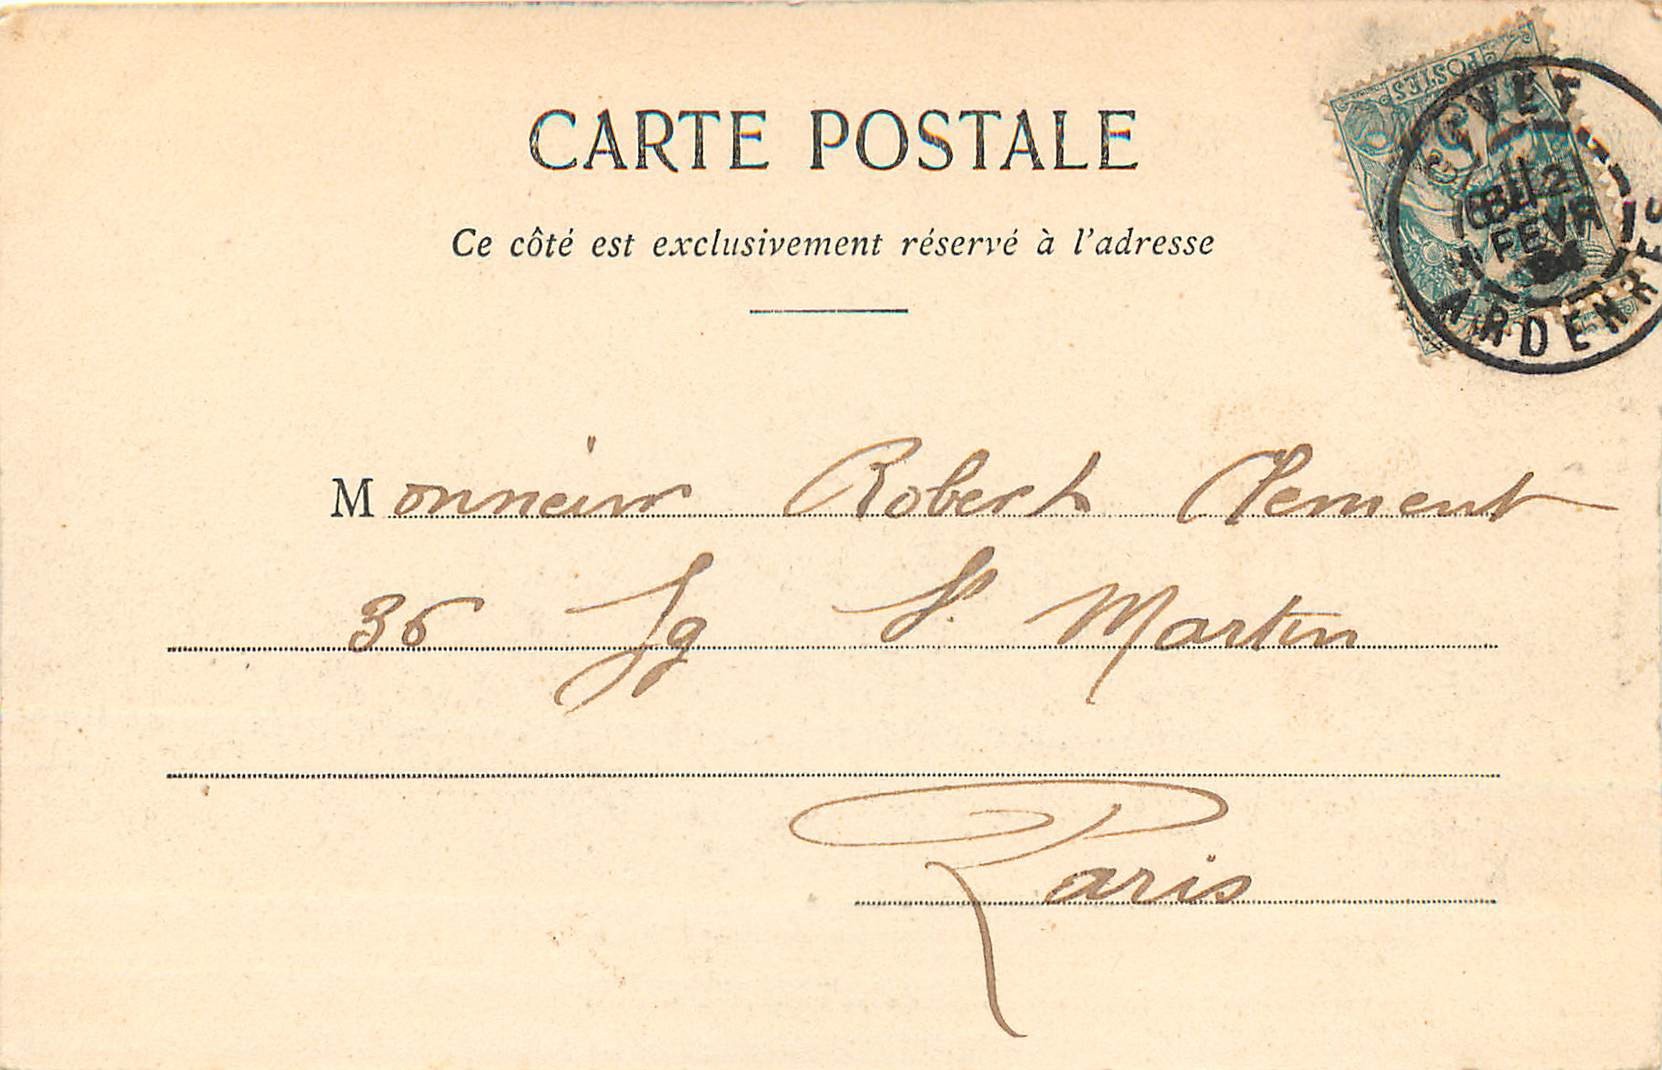 CARTE POSTALE
Ce côté est exclusivement réservé à l'adresse
POSTES
GIVET
FEVR
ARDENNES
Monsieur Robert Clement
36 Fg St. Martin
Paris